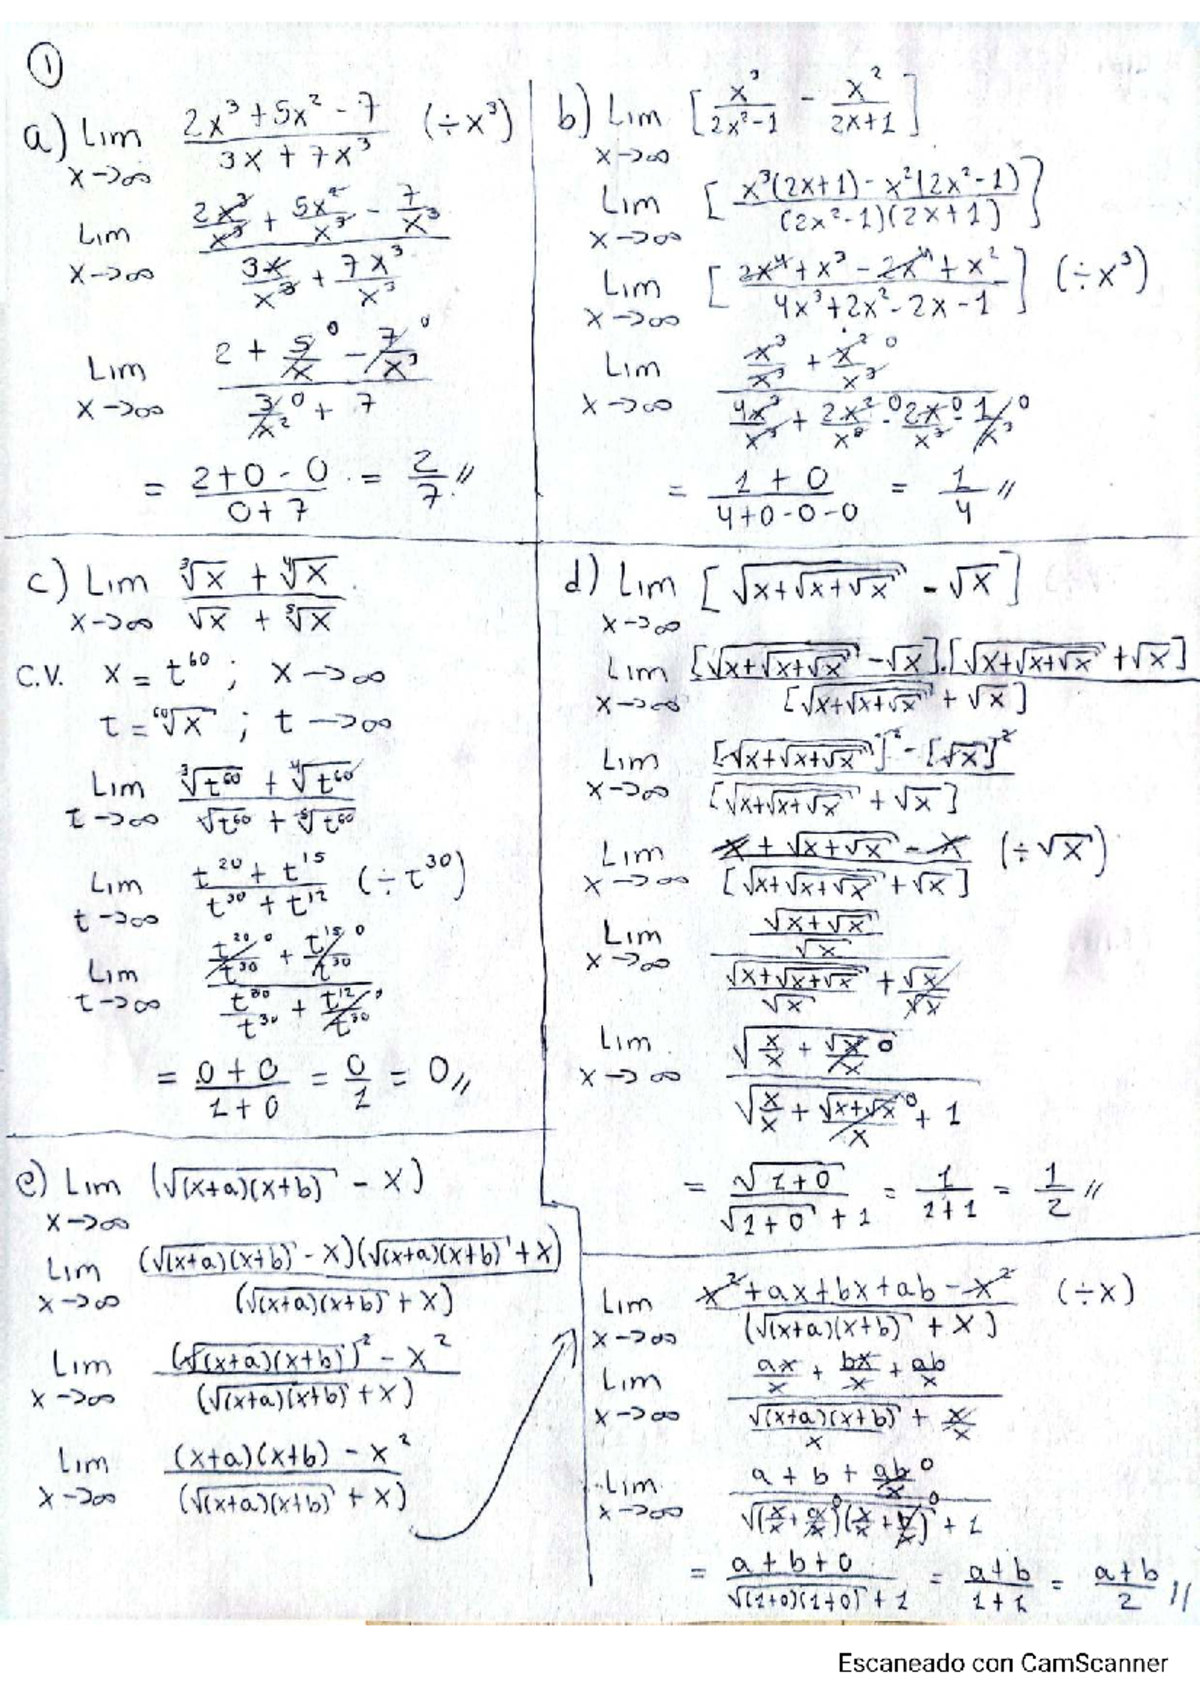 ①
a) Lim x→∞ (2x³ + 5x² - 7)/(3x + 7x³) (÷x³)
Lim x→∞ (2x³/x³ + 5x²/x³ - 7/x³)/(3x/x³ + 7x³/x³)
Lim x→∞ (2 + 5/x ⁰ - 7/x³ ⁰)/(3/x² ⁰ + 7)
= (2+0-0)/(0+7) = 2/7 //
b) Lim x→∞ [x³/(2x²-1) - x²/(2x+1)]
Lim x→∞ [(x³(2x+1) - x²(2x²-1))/((2x²-1)(2x+1))]
Lim x→∞ [(2x⁴ + x³ - 2x⁴ + x²)/(4x³+2x²-2x-1)] (÷x³)
Lim x→∞ (x³/x³ + x²/x³ ⁰)/(4x³/x³ + 2x²/x³ ⁰ - 2x/x³ ⁰ - 1/x³ ⁰)
= (1+0)/(4+0-0-0) = 1/4 //
c) Lim x→∞ (∛x + ∜x)/(√x + ⁵√x)
C.V. x = t⁶⁰ ; x→∞
t = ⁶⁰√x ; t→∞
Lim t→∞ (∛t⁶⁰ + ∜t⁶⁰)/(√t⁶⁰ + ⁵√t⁶⁰)
Lim t→∞ (t²⁰ + t¹⁵)/(t³⁰ + t¹²) (÷t³⁰)
Lim t→∞ (t²⁰/t³⁰ ⁰ + t¹⁵/t³⁰ ⁰)/(t³⁰/t³⁰ + t¹²/t³⁰ ⁰)
= (0+0)/(1+0) = 0/1 = 0 //
d) Lim x→∞ [√(x+√(x+√x)) - √x]
Lim x→∞ [√(x+√(x+√x)) - √x].[√(x+√(x+√x)) + √x]/[√(x+√(x+√x)) + √x]
Lim x→∞ ([√(x+√(x+√x))]² - [√x]²)/[√(x+√(x+√x)) + √x]
Lim x→∞ (x + √(x+√x) - x)/[√(x+√(x+√x)) + √x] (÷√x)
Lim x→∞ (√(x+√x)/√x)/(√(x+√(x+√x))/√x + √x/√x)
Lim x→∞ √(x/x + √x/x ⁰)/(√(x/x + √(x+√x)/x ⁰) + 1)
= √(1+0)/(√(1+0) + 1) = 1/(1+1) = 1/2 //
e) Lim x→∞ (√((x+a)(x+b)) - x)
Lim x→∞ (√((x+a)(x+b)) - x)(√((x+a)(x+b)) + x)/(√((x+a)(x+b)) + x)
Lim x→∞ ((√((x+a)(x+b)))² - x²)/(√((x+a)(x+b)) + x)
Lim x→∞ ((x+a)(x+b) - x²)/(√((x+a)(x+b)) + x)
Lim x→∞ (x²+ax+bx+ab-x²)/(√((x+a)(x+b)) + x) (÷x)
Lim x→∞ (ax/x + bx/x + ab/x)/(√((x+a)(x+b))/x + x/x)
Lim x→∞ (a + b + ab/x ⁰)/(√((x/x + a/x ⁰)(x/x + b/x ⁰)) + 1)
= (a+b+0)/(√((1+0)(1+0)) + 1) = (a+b)/(1+1) = (a+b)/2 //
Escaneado con CamScanner